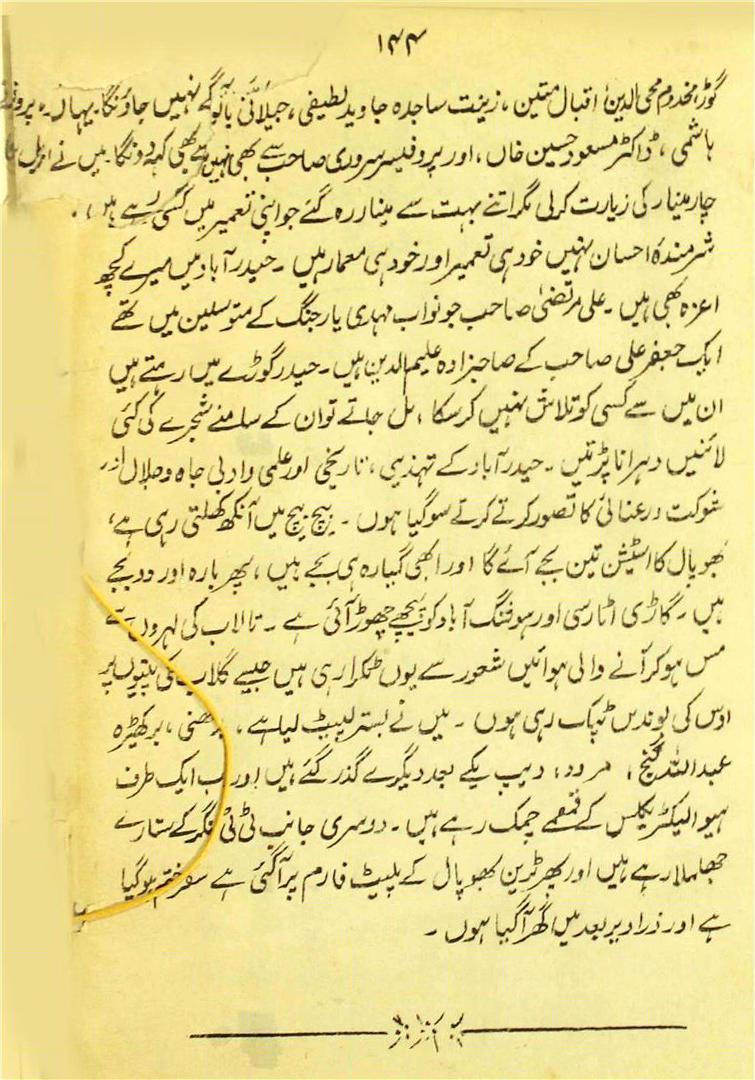 ۱۴۴
گوڑ، مخدوم محی الدین، اقبال متین، زینت ساجدہ جاوید لطیفی، جیلانی بانو کے گھر نہیں جاؤنگا. یہاں
ہاشمی، ڈاکٹر مسعود حسین خاں، اور پروفیسر سروری صاحب سے بھی نہیں ملے بھی کہہ دونگا. میں نے
چار مینار کی زیارت کرلی مگر اتنے بہت سے مینار رہ گئے جو اپنی تعمیر میں کسی رہے ہیں۔
شرمندۂ احسان نہیں خود ہی تعمیر اور خود ہی معمار ہیں ۔ حیدرآباد میں میرے کچھ
اعزہ بھی ہیں ۔ علی مرتضیٰ صاحب جو نواب مہدی یار جنگ کے متوسلین میں تھے
ایک جعفر علی صاحب کے صاحبزادہ علیم الدین ہیں ۔ حیدر گوڑے میں رہتے ہیں
ان میں سے کسی کو تلاش نہیں کرسکا، مل جاتے تو ان کے سامنے شجرے کی کئی
لائنیں دہرانا پڑتیں ۔ حیدرآباد کے تہذیبی، تاریخی اور علمی و ادبی جاہ و جلال اور
شوکت و رعنائی کا تصور کرتے کرتے سوگیا ہوں ۔ بیچ بیچ میں آنکھ کھلتی رہی ہے،
بھوپال کا اسٹیشن تین بجے آئے گا اور ابھی گیارہ ہی بجے ہیں، پھر بارہ اور دو بجے
ہیں ۔ گاڑی اٹارسی اور ہوشنگ آباد کو پیچھے چھوڑ آئی ہے ۔ تالاب کی لہروں سے
مس ہوکر آنے والی ہوائیں شعور سے یوں ٹکرا رہی ہیں جیسے گلاب کی پتیوں پر
اوس کی بوندیں ٹپک رہی ہوں ۔ میں نے بستر لپیٹ لیا ہے، بدھنی، برکھیڑہ
عبداللہ گنج، دیپ یکے بعد دیگرے گذر گئے ہیں اور اب ایک طرف
ہیوی الیکٹریکلس کے قمقمے چمک رہے ہیں ۔ دوسری جانب ٹی ٹی نگر کے ستارے
جھلملا رہے ہیں اور پھر ٹرین بھوپال کے پلیٹ فارم پر آگئی ہے سفر ختم ہوگیا
ہے اور ذرا دیر بعد میں گھر آگیا ہوں ۔